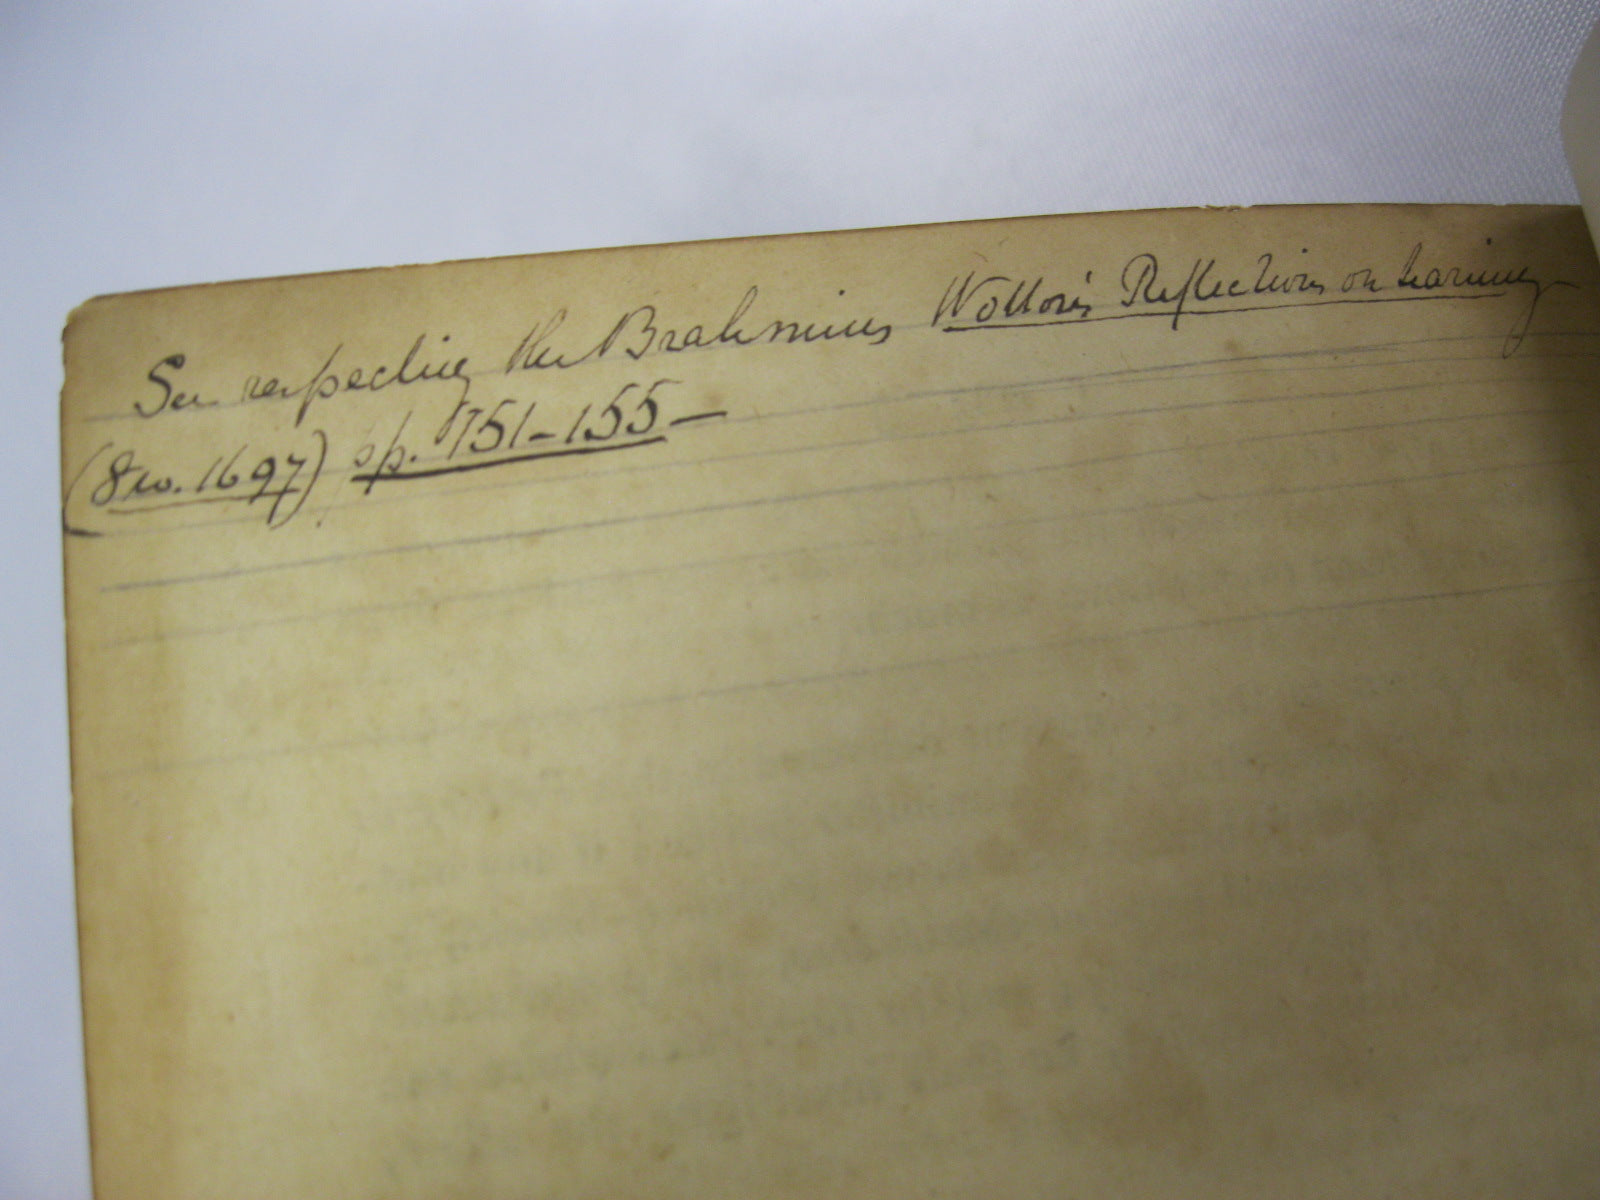 See respecting the Brahmins Wotton's Reflections on Learning
(8vo. 1697) pp. 151-155-